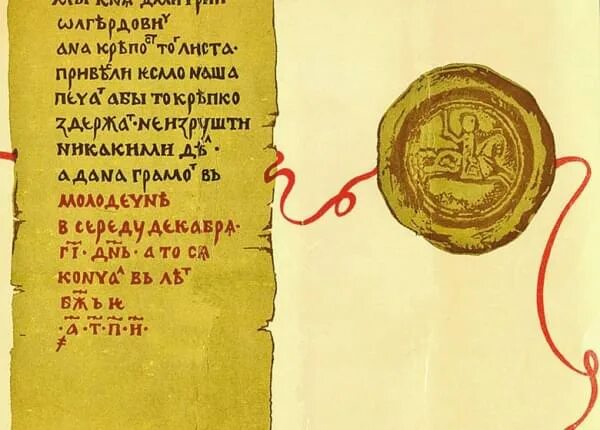 мы кнѧ дмитрии
ѡлгердовиⷱ
ана крѣпоⷭ҇ⷮ тоⷢ листа·
привели есмо наша
печаⷮ абы то крѣпко
здержаⷮ· неизрушти
никакими дѣⷧ·
· а дана грамоⷮ въ
молодечнѣ
в середу декабрѧ·
г҃і· дн҃ь · а то сѧ
кончаⷧ въ лѣⷮ
бж҃ъ и
·҂а҃·т҃·п҃·и҃·